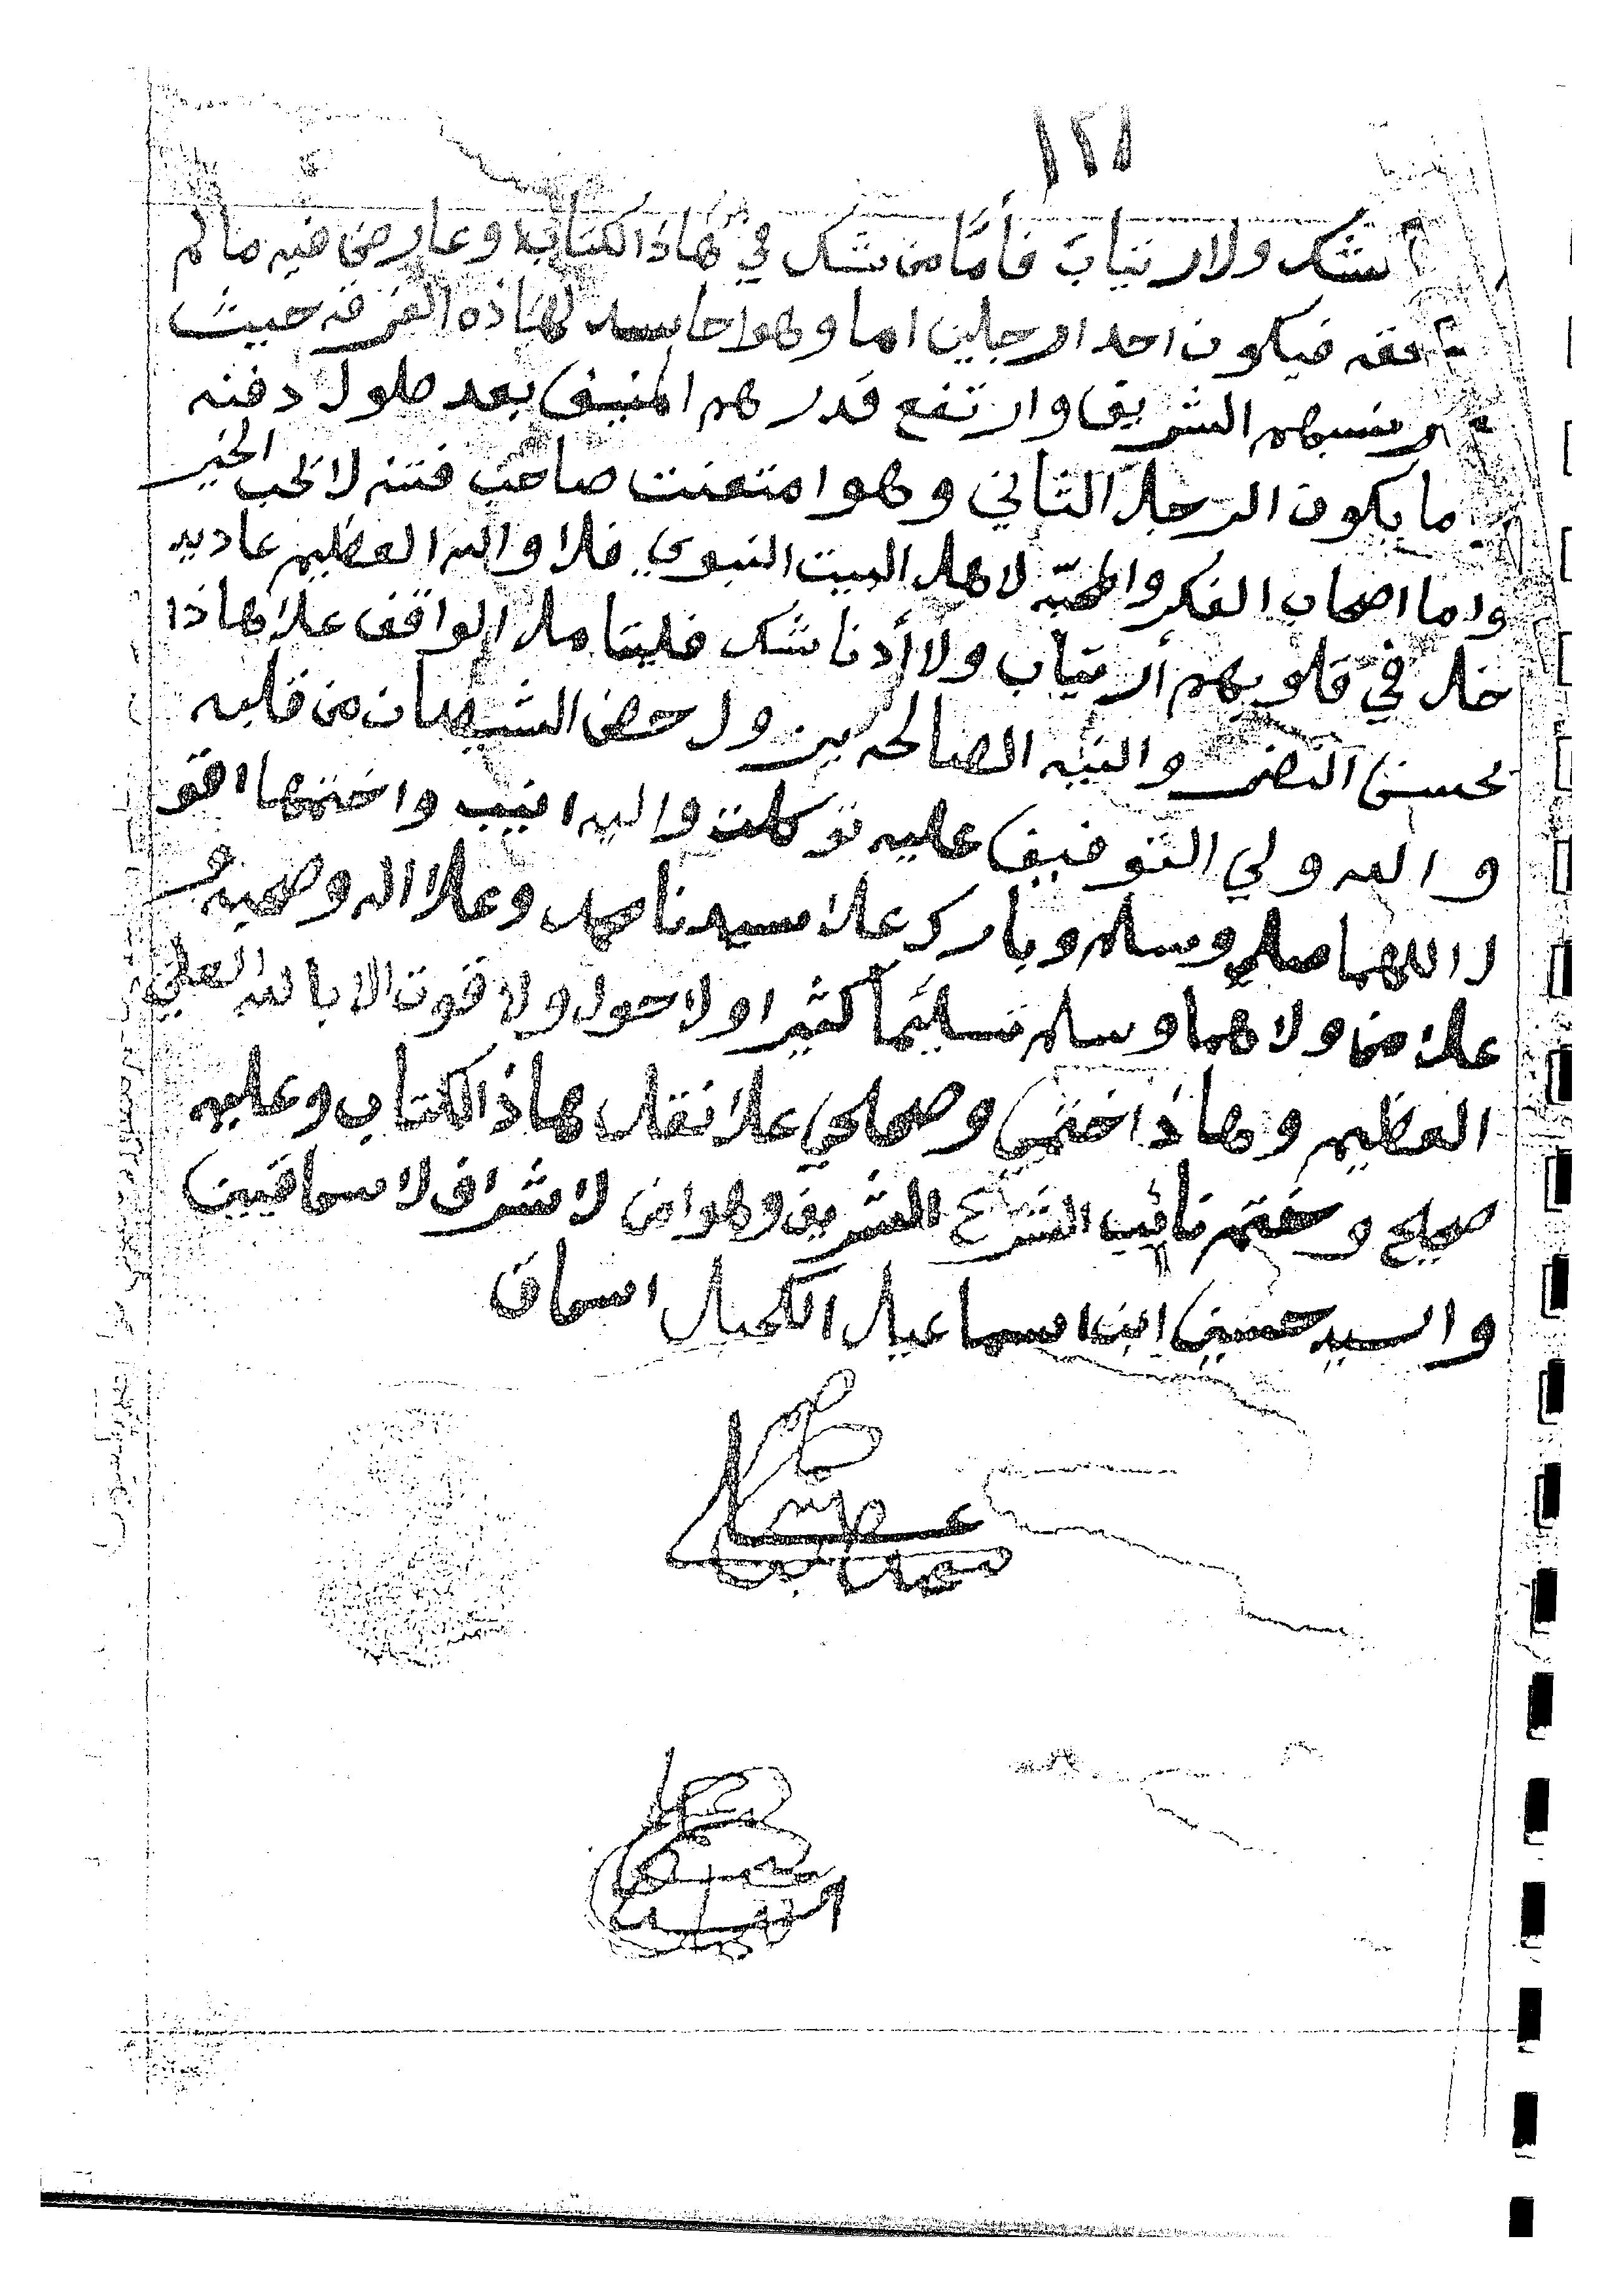 ١٢١
شك ولا ارتياب فأمّا من شك في هاذا الكتاب وعارض فيه مالم
فقه فيكون احد الرجلين اما وهوا حاسد لهاذه الفرقه حيث
نسبهم الشريف وارتفع قدرهم المنيف بعد طول دفنه
ما يكون الرجل الثاني وهوا متعنت صاحب فتنه لا يحب الخير
واما اصحاب الفكر والمحبّه لاهل البيت النبوي فلا والله العظيم عاديد
خل في قلوبهم أرتياب ولا أدنا شك فليتامل الواقف علا هاذا
بحسن النضر والنيه الصالحه يزول حض الشيطان من قلبه
والله ولي التوفيق عليه توكلت واليه انيب واختمها اقو
ل اللهما صلي وسلم وبارك علا سيدنا محمد وعلا اله وصحبه
علا من ولاهما وسلم تسليمًا كثيرا ولا حول ولا قوت الا بالله العلي
العظيم وهاذا ختمي وصحلحي علا نقل هاذا الكتاب وعليه
صحيح وختم نائب الشرع الشريف وهوا من لاشراف لاسماقيين
والسيد حسين ابن اسماعيل الكحيل اسماق